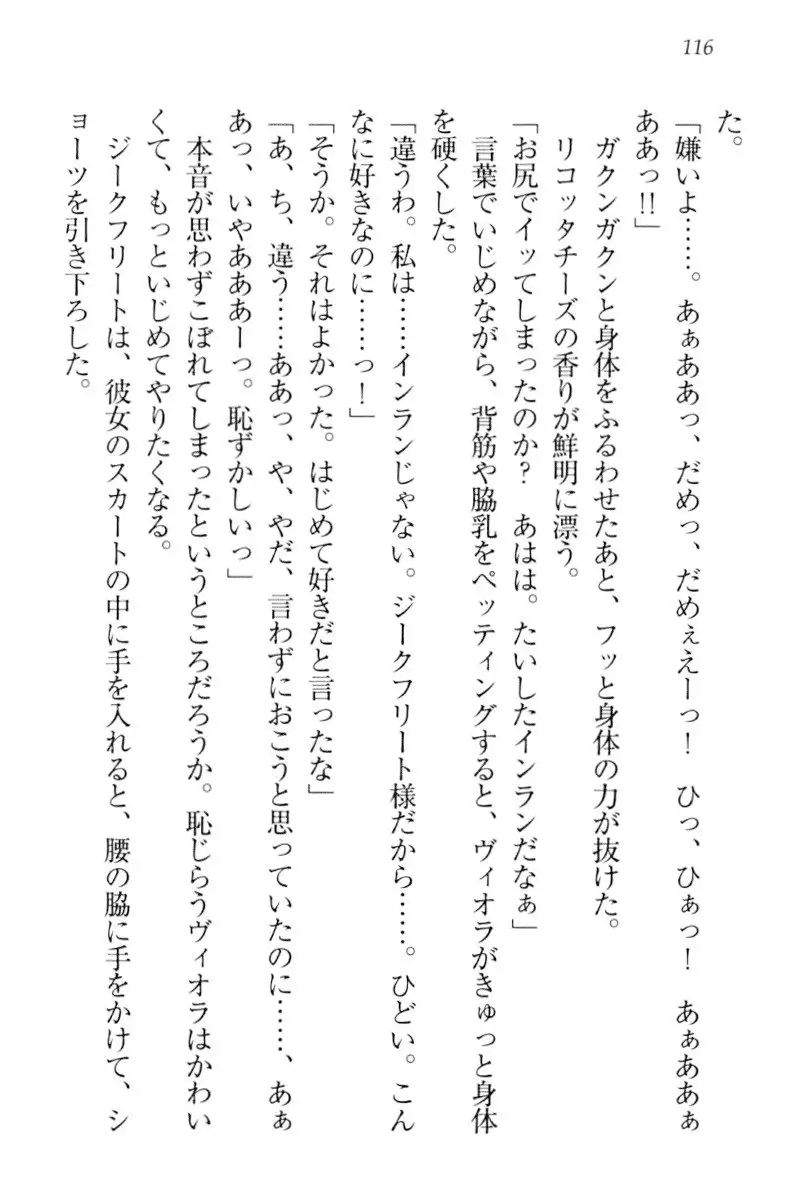 116
た。
「嫌いよ……。あぁああっ、だめっ、だめぇえーっ！　ひっ、ひぁっ！　あぁああぁ
ああっ!!」
ガクンガクンと身体をふるわせたあと、フッと身体の力が抜けた。
リコッタチーズの香りが鮮明に漂う。
「お尻でイッてしまったのか？　あはは。たいしたインランだなぁ」
言葉でいじめながら、背筋や脇乳をペッティングすると、ヴィオラがきゅっと身体
を硬くした。
「違うわ。私は……インランじゃない。ジークフリート様だから……。ひどい。こん
なに好きなのに……っ！」
「そうか。それはよかった。はじめて好きだと言ったな」
「あ、ち、違う……ああっ、や、やだ、言わずにおこうと思っていたのに……、あぁ
あっ、いやあああーっ。恥ずかしいっ」
本音が思わずこぼれてしまったというところだろうか。恥じらうヴィオラはかわい
くて、もっといじめてやりたくなる。
ジークフリートは、彼女のスカートの中に手を入れると、腰の脇に手をかけて、シ
ョーツを引き下ろした。